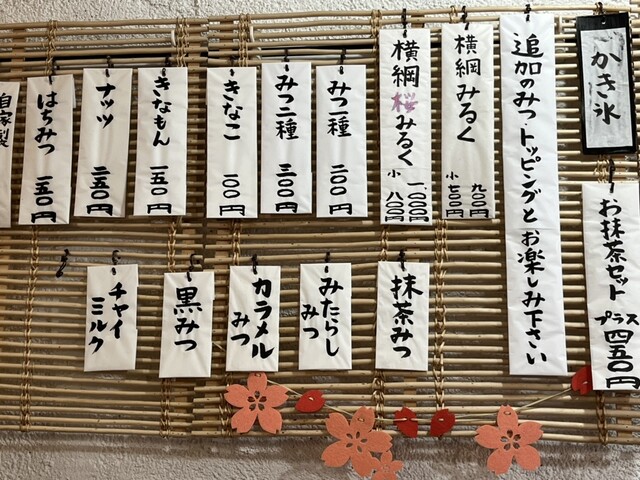 かき氷
お抹茶セット
プラス四五〇円
追加のみつ・トッピングとお楽しみ下さい
横綱みるく
九〇〇円
小 七〇〇円
横綱桜みるく
一,〇〇〇円
小 八〇〇円
みつ二種 二〇〇円
みつ三種 三〇〇円
きなこ 一〇〇円
きなもん 一五〇円
ナッツ 二五〇円
はちみつ 二五〇円
自家製
抹茶みつ
みたらし
みつ
カラメル
みつ
黒みつ
チャイ
ミルク